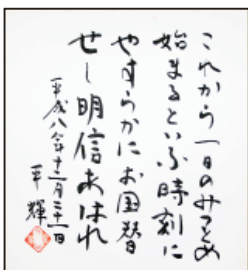 これから一日のみつとめ
始まるといふ時刻に
やすらかにお国替
せし明信あはれ
平成八年十二月二十一日
平輝